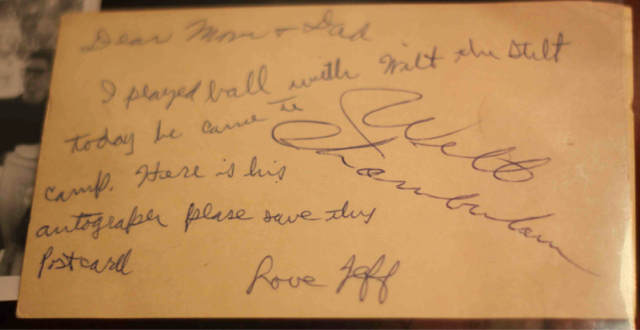 Dear Mom + Dad
I played ball with Wilt the Stilt
today he came to
camp. Here is his
autograper please save this
Postcard
Love Jeff
Wilt
Chamberlain